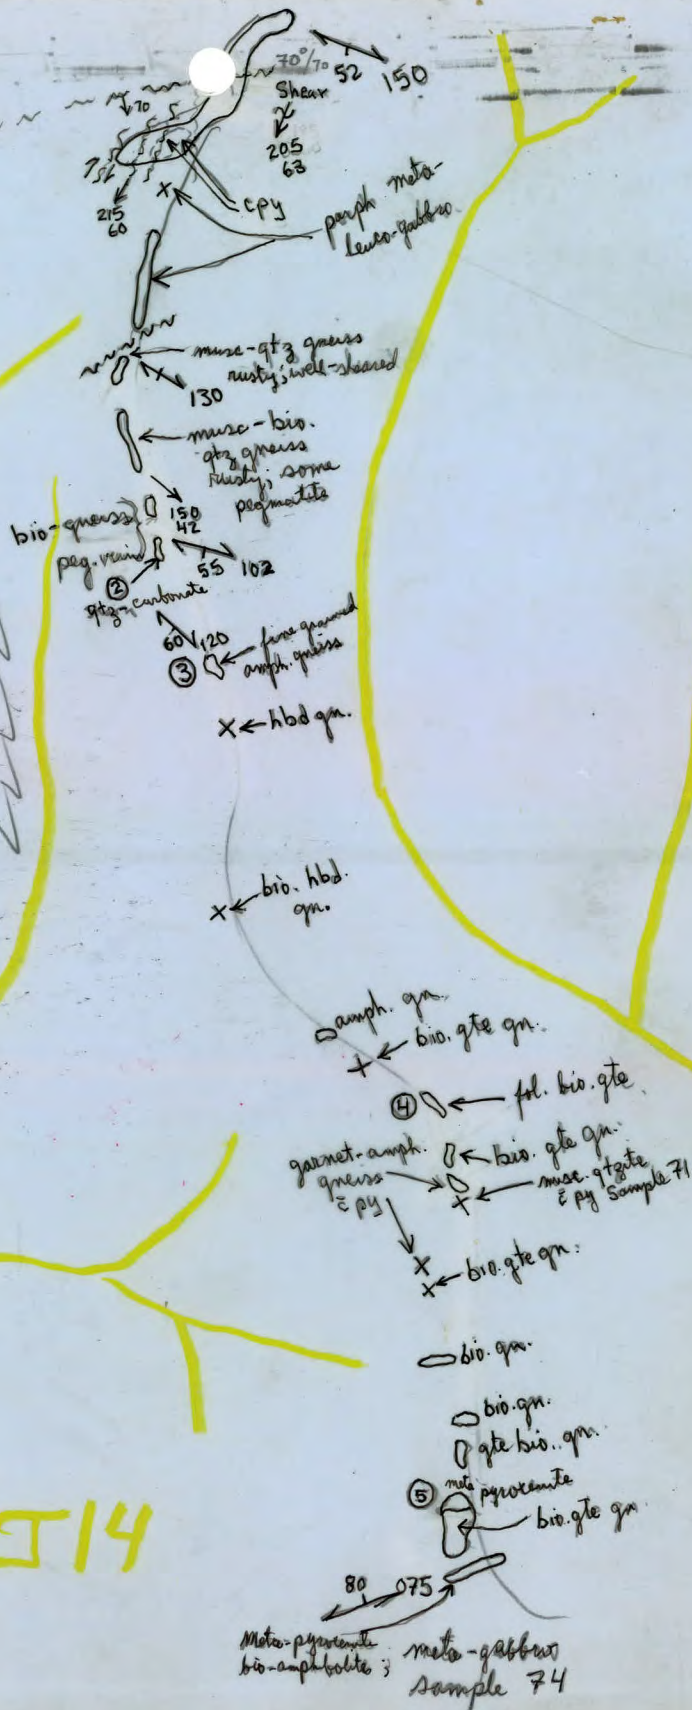 70°/70
52
150
Shear
70
205
63
cpy
215
60
porph. meta-
leuco-gabbro.
musc-qtz gneiss
rusty; well-sheared
130
musc-bio.
qtz gneiss
rusty; some
pegmatite
150
42
bio-gneiss
peg. vein
55 102
2
qtz-carbonate
60 120
3
fine grained
amph. gneiss
hbd gn.
bio. hbd.
gn.
amph. gn.
bio. gte gn.
4
fol. bio. gte
garnet-amph.
gneiss
c̄ py
bio. gte gn.
musc. qtzite
c̄ py Sample 71
bio. gte gn.
bio. gn.
bio. gn.
gte bio. gn.
5
meta pyroxenite
bio. gte gn
J14
80 075
Meta-pyroxenite
bio-amphibolite;
meta-gabbro
sample 74